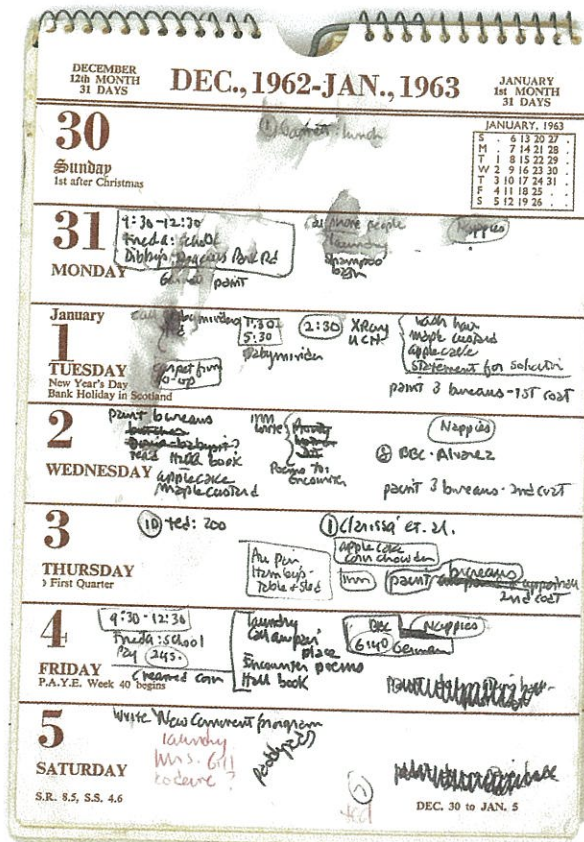 DECEMBER
12th MONTH
31 DAYS
DEC., 1962-JAN., 1963
JANUARY
1st MONTH
31 DAYS
30
Sunday
1st after Christmas
① lunch
JANUARY, 1963
S . 6 13 20 27 .
M . 7 14 21 28 .
T 1 8 15 22 29 .
W 2 9 16 23 30 .
T 3 10 17 24 31 .
F 4 11 18 25 . .
S 5 12 19 26 . .
31
MONDAY
9:30-12:30
Frieda: school
Dibby's Park Rd
paint
call more people
laundry
shampoo
Nappies
January
1
TUESDAY
New Year's Day
Bank Holiday in Scotland
call babyminders
5:30
babyminder
carpet from
co-op
2:30 XRay
UCH
Wash hair
maple custard
applecake
statement for solicitor
paint 3 bureaus - 1st coat
2
WEDNESDAY
paint bureaus
read Hall book
applecake
Maple custard
write
Poems to
Encounter
Nappies
⑧ BBC - Alvarez
paint 3 bureaus - 2nd coat
3
THURSDAY
First Quarter
⑩ ted: zoo
Au Pair
Hamleys -
Table & sled
① Clarissa et. al.
apple cake
corn chowder
paint bureaus
2nd coat
4
FRIDAY
P.A.Y.E. Week 40 begins
9:30-12:30
Frieda: school
Pay 24s.
Creamed corn
laundry
Call au pair
place
Encounter poems
Hall book
BBC
German
Nappies
5
SATURDAY
S.R. 8.5, S.S. 4.6
Write New Comment program
laundry
Mrs. Gill
ted
DEC. 30 to JAN. 5